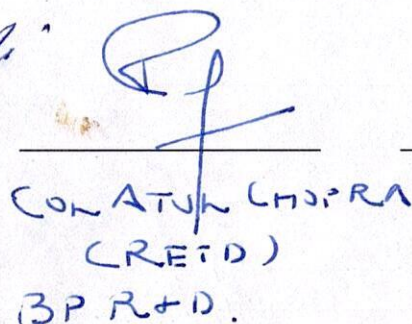 COL ATUL CHOPRA
(RETD)
BP R&D.